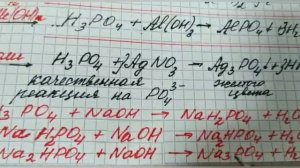 Al(OH)
H₃PO₄ + Al(OH)₃ → AlPO₄ + 3H₂
H₃PO₄ + 3AgNO₃ → Ag₃PO₄ + 3H
качественная желтого
реакция на PO₄³⁻ цвета
PO₄ + NaOH → NaH₂PO₄ + H₂O
NaH₂PO₄ + NaOH → Na₂HPO₄ + H₂
Na₂HPO₄ + NaOH → Na₃PO₄ + H₂